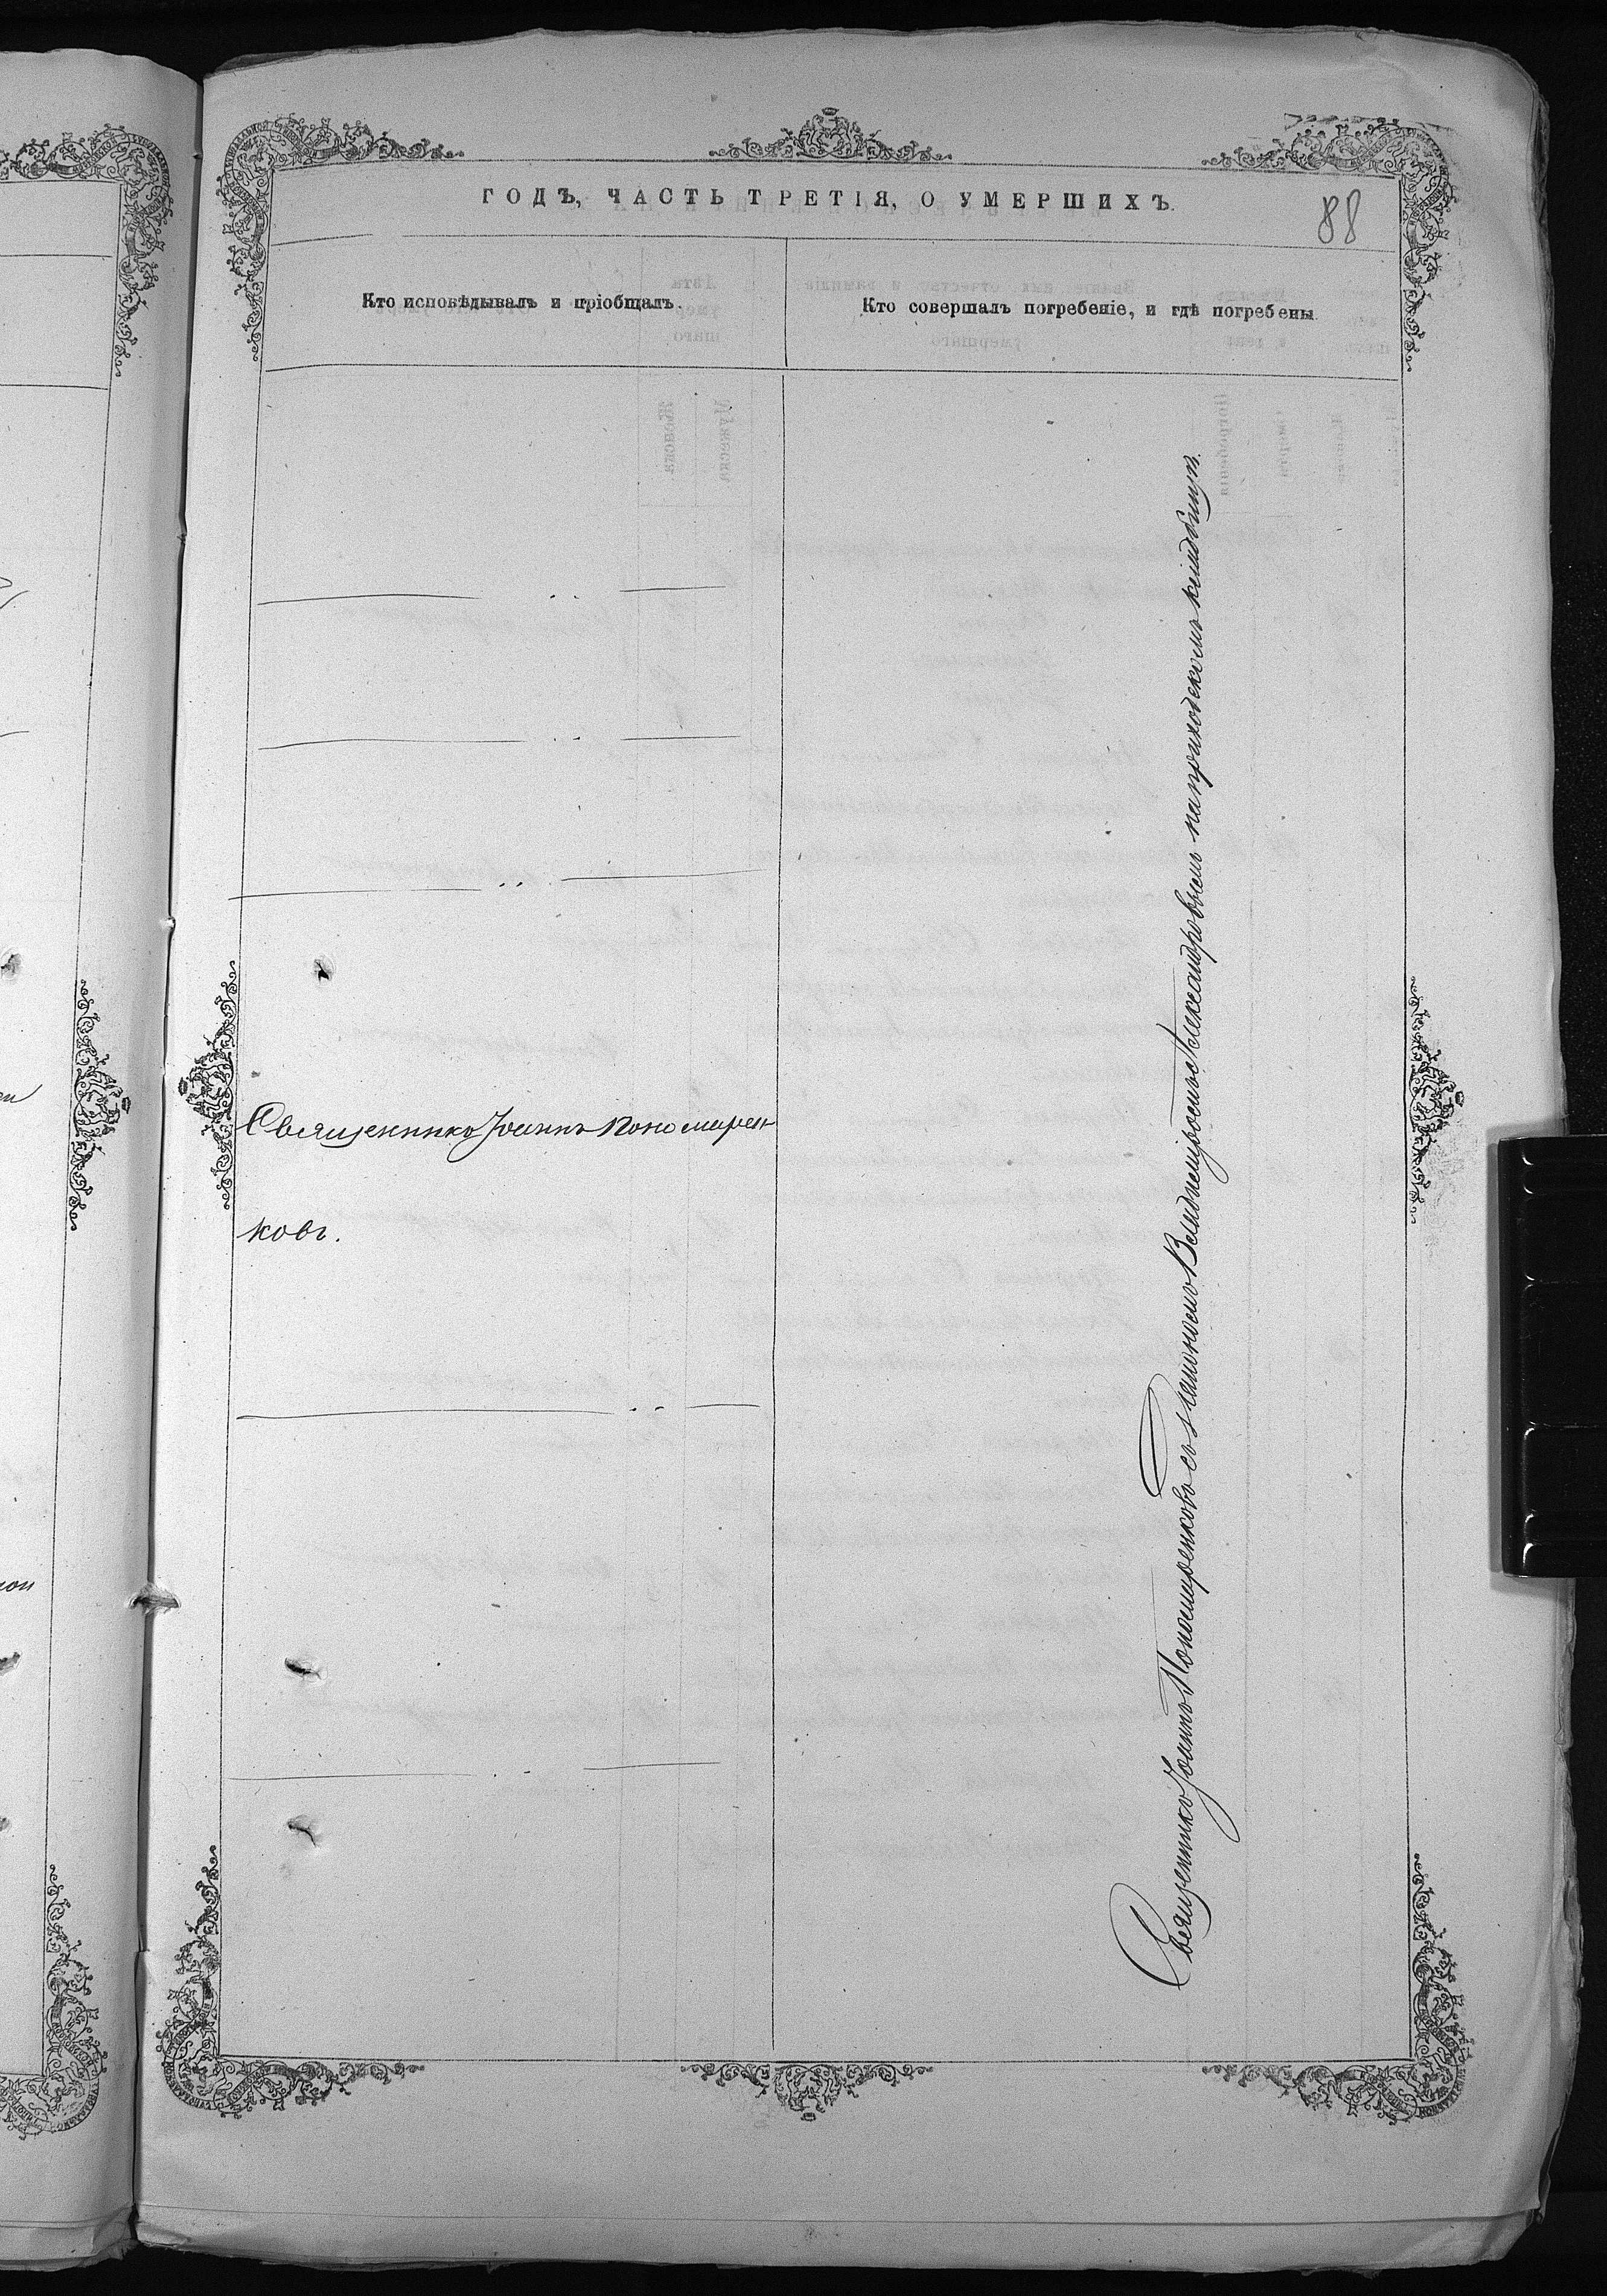 ГОДЪ, ЧАСТЬ ТРЕТІЯ, О УМЕРШИХЪ.
88
Кто исповѣдывалъ и пріобщалъ.
Кто совершалъ погребеніе, и гдѣ погребены.
Священникъ Іоаннъ Пономарен
ковъ.
Священникъ Іоаннъ Пономаренковъ съ Александровымъ на приходскомъ кладбищѣ.